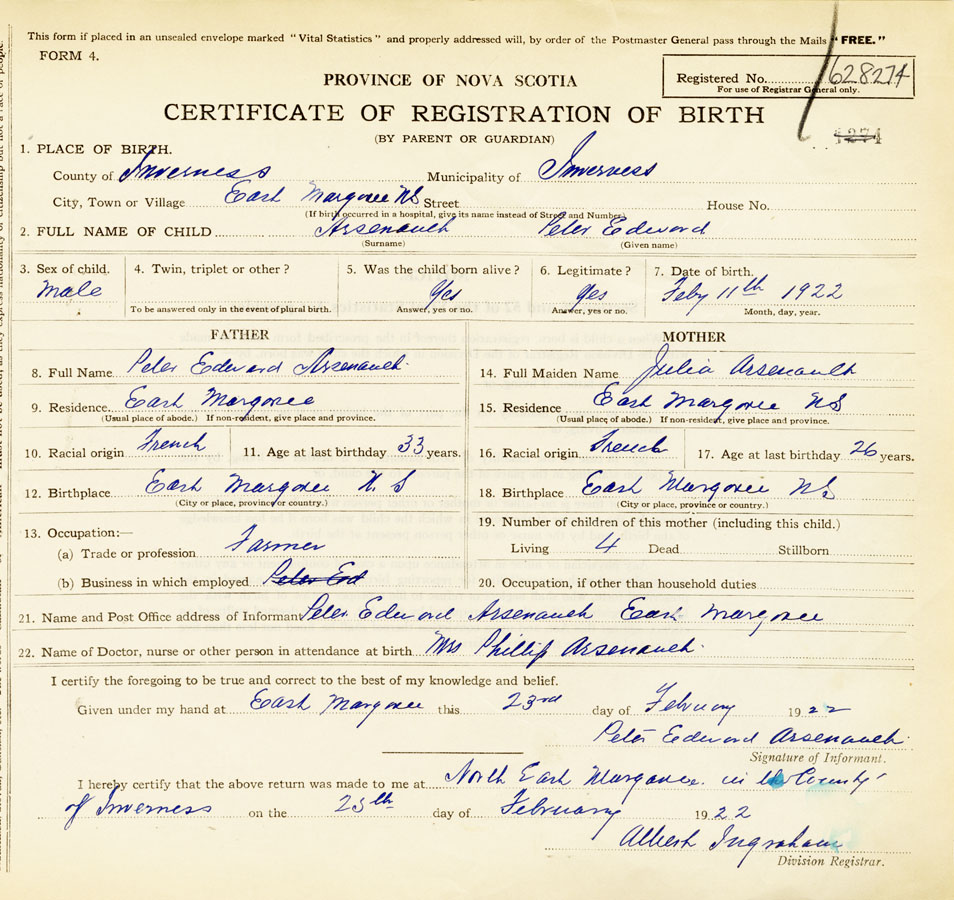 This form if placed in an unsealed envelope marked "Vital Statistics" and properly addressed will, by order of the Postmaster General pass through the Mails "FREE."
FORM 4.
PROVINCE OF NOVA SCOTIA
Registered No. 628274
For use of Registrar General only.
CERTIFICATE OF REGISTRATION OF BIRTH
(BY PARENT OR GUARDIAN)
4274
1. PLACE OF BIRTH.
County of Inverness Municipality of Inverness
City, Town or Village East Margaree NS Street House No.
(If birth occurred in a hospital, give its name instead of Street and Number)
2. FULL NAME OF CHILD Arsenault Peter Edward
(Surname) (Given name)
3. Sex of child. 4. Twin, triplet or other? 5. Was the child born alive? 6. Legitimate? 7. Date of birth.
Male Yes Yes Feby 11th 1922
To be answered only in the event of plural birth. Answer, yes or no. Answer, yes or no. Month, day, year.
FATHER
8. Full Name Peter Edward Arsenault
9. Residence East Margaree
(Usual place of abode.) If non-resident, give place and province.
10. Racial origin French 11. Age at last birthday 33 years.
12. Birthplace East Margaree N. S
(City or place, province or country.)
13. Occupation:—
(a) Trade or profession Farmer
(b) Business in which employed Peter Ed
MOTHER
14. Full Maiden Name Julia Arsenault
15. Residence East Margaree NS
(Usual place of abode.) If non-resident, give place and province.
16. Racial origin French 17. Age at last birthday 26 years.
18. Birthplace East Margaree NS
(City or place, province or country.)
19. Number of children of this mother (including this child.)
Living 4 Dead Stillborn
20. Occupation, if other than household duties
21. Name and Post Office address of Informan Peter Edward Arsenault East Margaree
22. Name of Doctor, nurse or other person in attendance at birth Mrs Phillip Arsenault
I certify the foregoing to be true and correct to the best of my knowledge and belief.
Given under my hand at East Margaree this 23rd day of February 1922
Peter Edward Arsenault
Signature of Informant.
I hereby certify that the above return was made to me at North East Margaree in the County
of Inverness on the 25th day of February 1922
Albert Ingraham
Division Registrar.